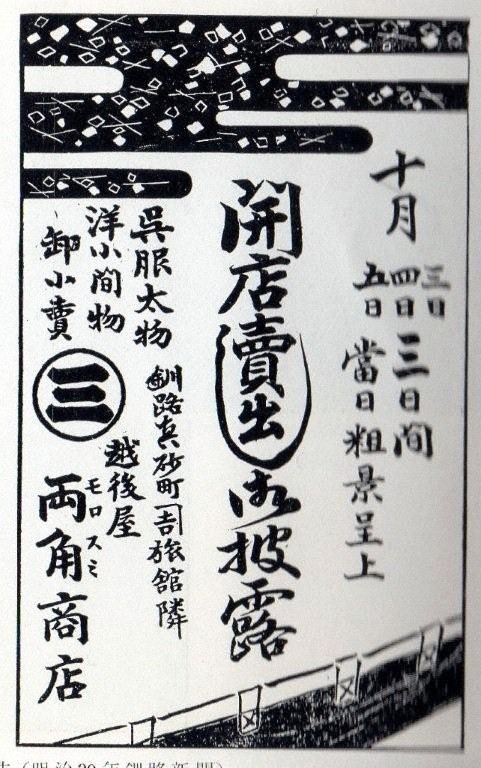 十月
三日
四日
五日
三日間
當日粗景呈上
開店賣出御披露
呉服太物
洋小間物
卸小賣
釧路真砂町
旅館隣
三
越後屋
両角商店
モロスミ
(明治39年釧路新聞)